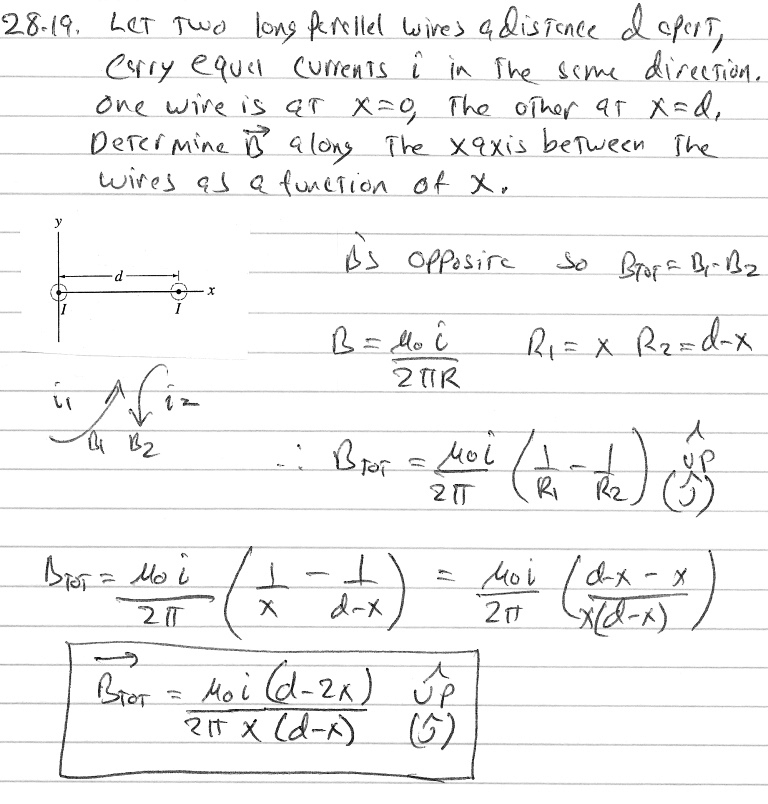 28.19. Let two long parallel wires a distance d apart,
carry equal currents i in the same direction.
One wire is at x=0, the other at x=d.
Determine B⃗ along the x axis between the
wires as a function of x.
y
d
x
I I
B's opposite so B_TOT = B₁-B₂
B = μ₀ i / 2πR R₁ = x R₂ = d-x
i₁ i₂
B₁ B₂
∴ B_TOT = μ₀ i / 2π (1/R₁ - 1/R₂) ûp (ĵ)
B_TOT = μ₀ i / 2π (1/x - 1/(d-x)) = μ₀ i / 2π ((d-x-x) / x(d-x))
B⃗_TOT = μ₀ i (d-2x) / 2π x (d-x) ûp (ĵ)